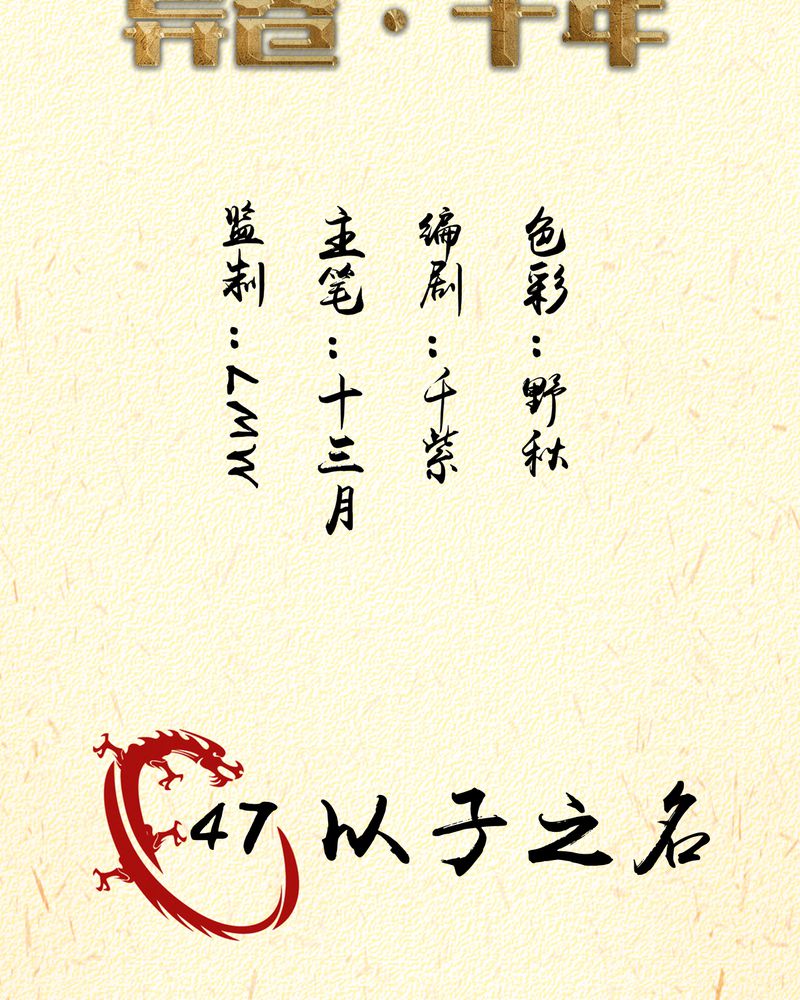 色彩：野秋
编剧：千紫
主笔：十三月
监制：MW7
47 以子之名